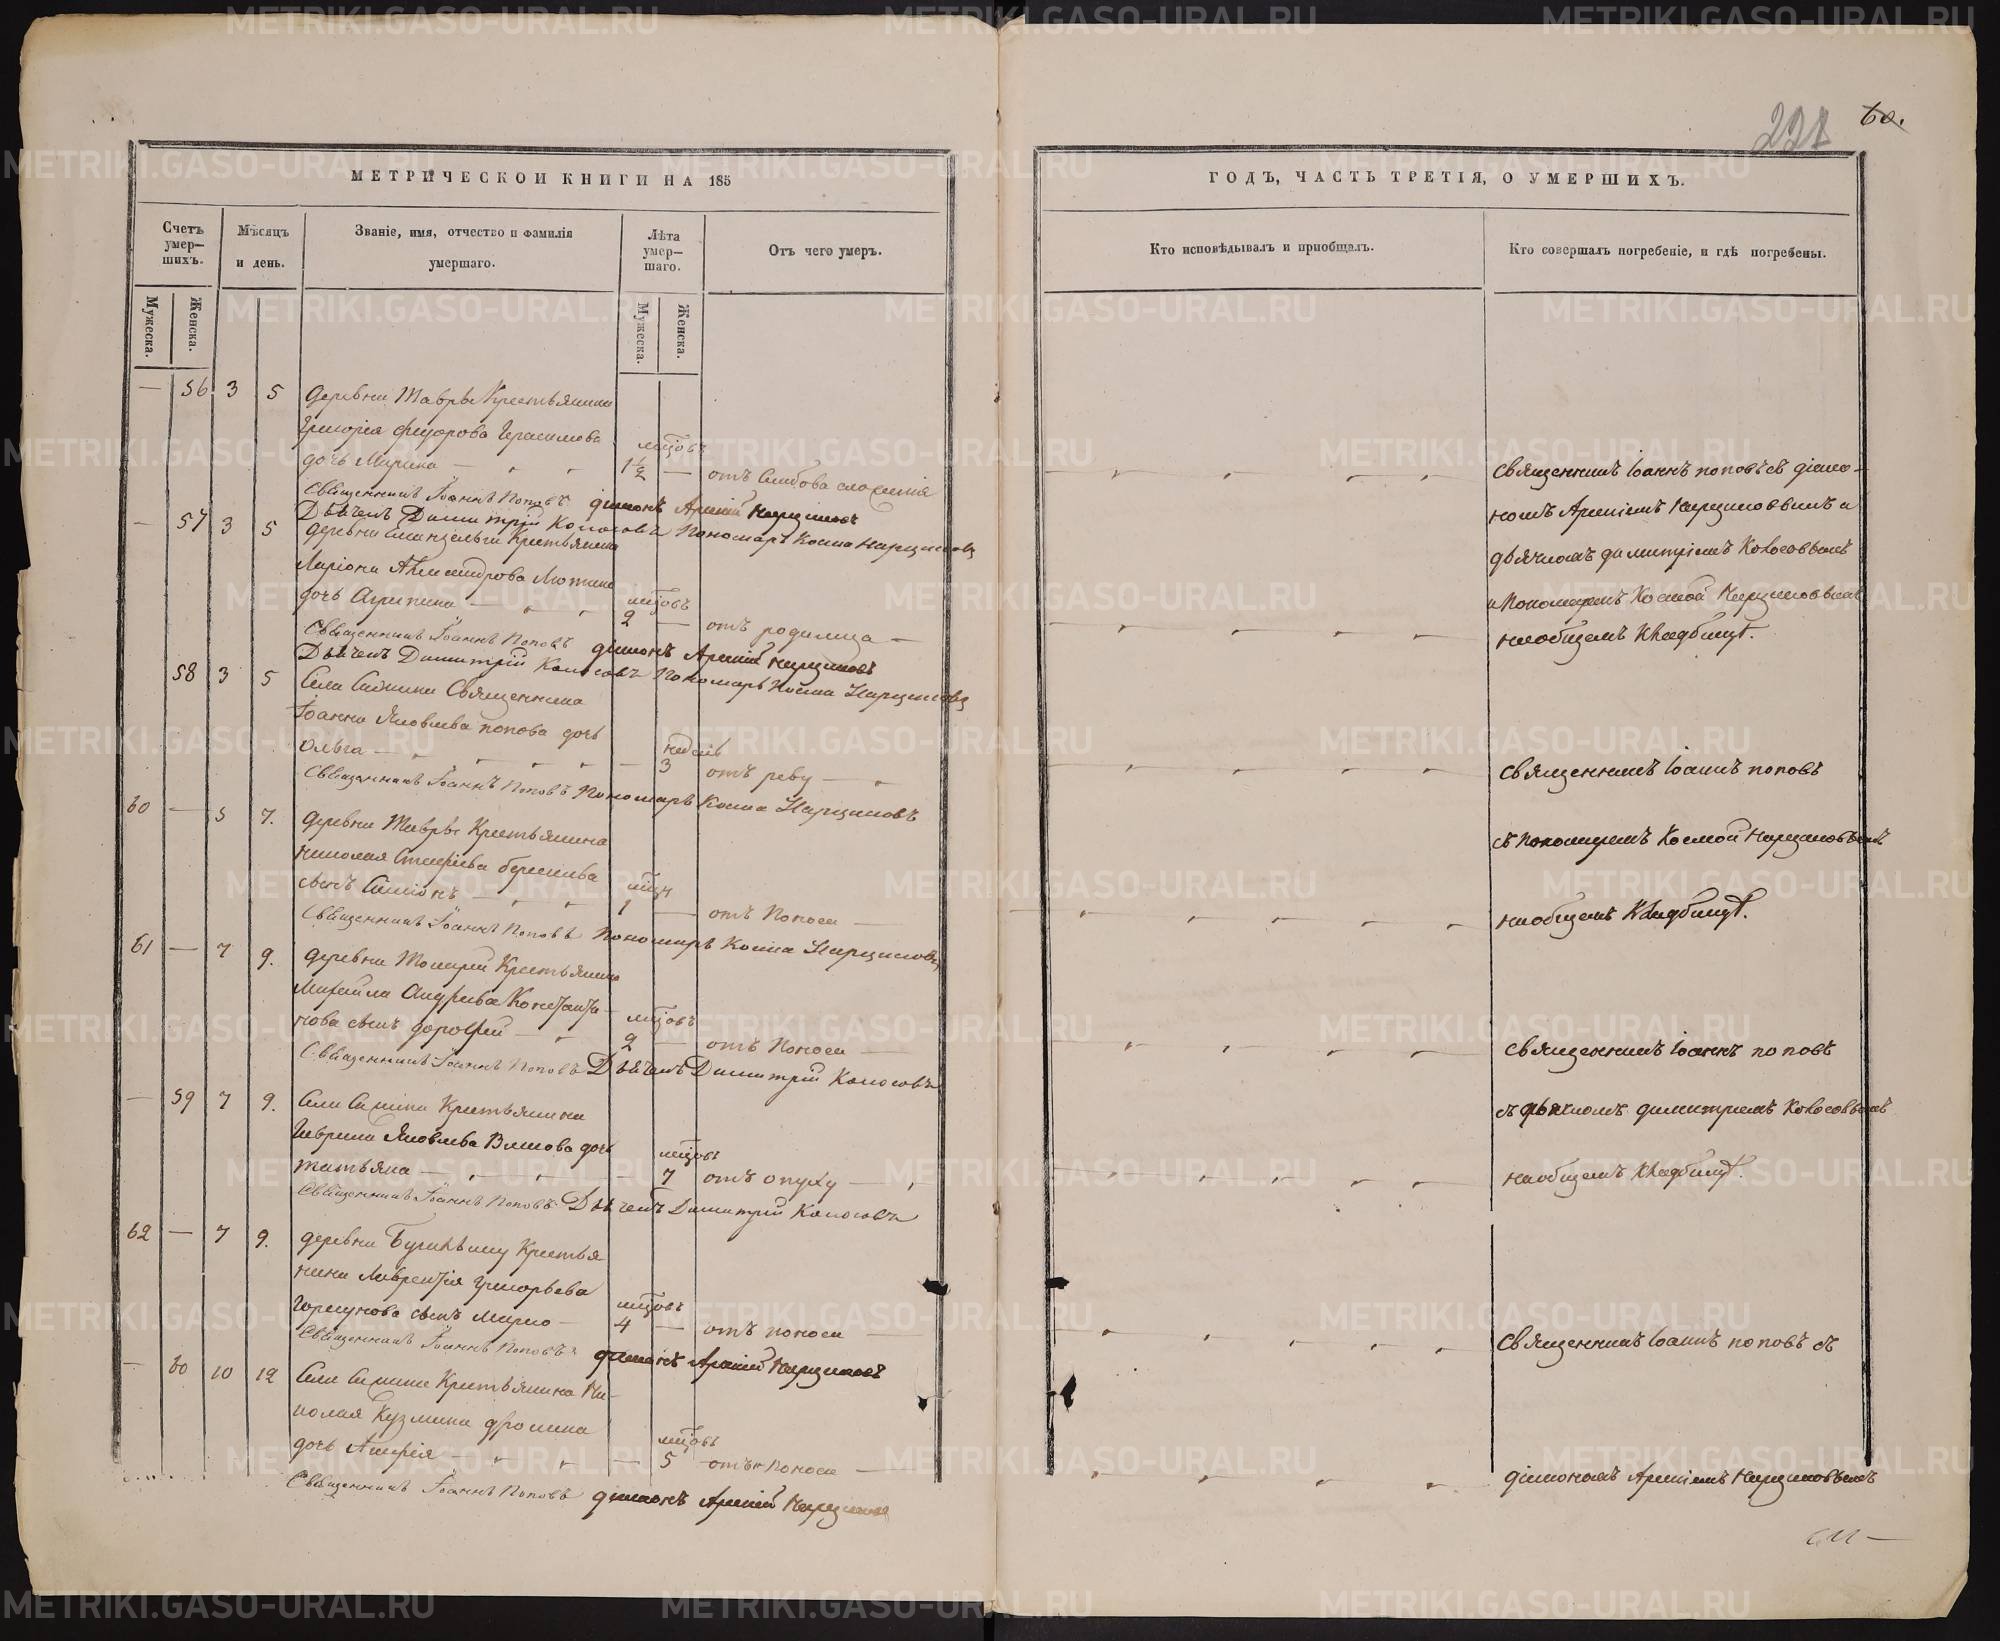 228 60.
МЕТРИЧЕСКОЙ КНИГИ НА 185
Счетъ умер-
шихъ.
Мѣсяцъ
и день.
Званіе, имя, отчество и фамилія
умершаго.
Лѣта
умер-
шаго.
Отъ чего умеръ.
Мужеска.
Женска.
Мужеска.
Женска.
— 56 3 5 деревни Тавры Крестьянина
Григорія Федорова Герасимова мѣсцовъ
дочь Марина — 1½ — отъ слабова сложенія
Священникъ Іоаннъ Поповъ діаконъ Арсеній Нарциссовъ
Дьячекъ Димитрій Колосовъ Пономарь Косма Нарциссовъ
— 57 3 5 деревни Крестьянина
Ларіона Александрова
дочь Агрипина — мѣсцовъ 2 — отъ родимца —
Священникъ Іоаннъ Поповъ діаконъ Арсеній Нарциссовъ
Дьячекъ Димитрій Колосовъ Пономарь Косма Нарциссовъ
58 3 5 Села Священника
Іоанна Яковлева Попова дочь
Ольга — недель 3 отъ реву —
Священникъ Іоаннъ Поповъ Пономарь Косма Нарциссовъ
60 — 5 7. деревни Тавры Крестьянина
Николая
сынъ Симіонъ — мѣсяц 1 — отъ поноса —
Священникъ Іоаннъ Поповъ Пономарь Косма Нарциссовъ
61 — 7 9. деревни Крестьянина
Михаила Андреева Константи-
нова сынъ Дорофей — мѣсцовъ 2 — отъ поноса —
Священникъ Іоаннъ Поповъ Дьячекъ Димитрій Колосовъ
— 59 7 9. Села Крестьянина
Гаврила Яковлева Власова дочь мѣсцовъ
татьяна — 7 отъ опуху —
Священникъ Іоаннъ Поповъ Дьячекъ Димитрій Колосовъ
62 — 7 9. деревни Крестья
нина Лаврентія Григорьева
Горшунова сынъ — мѣсцовъ 4 — отъ поноса —
Священникъ Іоаннъ Поповъ діаконъ Арсеній Нарциссовъ
— 60 10 12 Села Крестьянина Ни-
колая Кузмина
дочь — мѣсцовъ 5 отъ поноса —
Священникъ Іоаннъ Поповъ діаконъ Арсеній Нарциссовъ
ГОДЪ, ЧАСТЬ ТРЕТІЯ, О УМЕРШИХЪ.
Кто исповѣдывалъ и приобщалъ.
Кто совершалъ погребеніе, и гдѣ погребены.
священникъ Іоаннъ поповъ съ діако-
номъ Арсеніемъ Нарциссовымъ и
дьячкомъ димитріемъ Колосовымъ
и Пономаремъ Космой Нарциссовымъ
на общемъ Кладбищѣ.
священникъ Іоаннъ поповъ
съ пономаремъ Космой Нарциссовымъ
на общемъ Кладбищѣ.
священникъ Іоаннъ поповъ
съ дьячкомъ димитріемъ Колосовымъ
на общемъ Кладбищѣ.
священникъ Іоаннъ поповъ съ
діакономъ Арсеніемъ Нарциссовымъ
METRIKI.GASO-URAL.RU